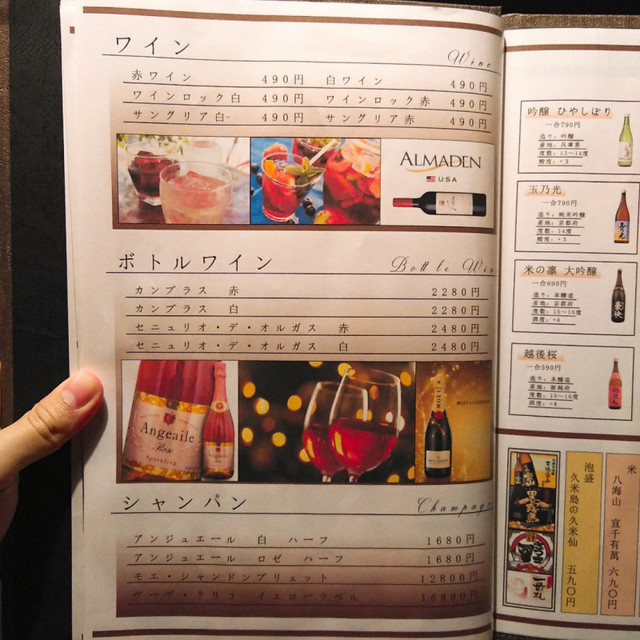 ワイン
Wine
赤ワイン 490円 白ワイン 490円
ワインロック白 490円 ワインロック赤 490円
サングリア白 490円 サングリア赤 490円
ALMADEN
USA
ボトルワイン
Bottle Win
カンブラス 赤 2280円
カンブラス 白 2280円
セニュリオ・デ・オルガス 赤 2480円
セニュリオ・デ・オルガス 白 2480円
Angeaile
Rosé
Sparkling
シャンパン
Champag
アンジュエール 白 ハーフ 1680円
アンジュエール ロゼ ハーフ 1680円
モエ・シャンドンブリュット 12800円
ヴーヴ・クリコ イエローラベル 16800円
吟醸 ひやしぼり
一合790円
造り:吟醸
産地:兵庫県
度数:13〜14度
酒度:+3
玉乃光
一合790円
造り:純米吟醸
産地:京都府
度数:14度
酒度:+3
米の凛 大吟醸
一合690円
造り:本醸造
産地:京都府
度数:15〜16度
酒度:+4
越後桜
一合590円
造り:本醸造
産地:新潟県
度数:15〜16度
酒度:+4
米
八海山 宜有千萬 六九〇円
泡盛
久米島の久米仙 五九〇円